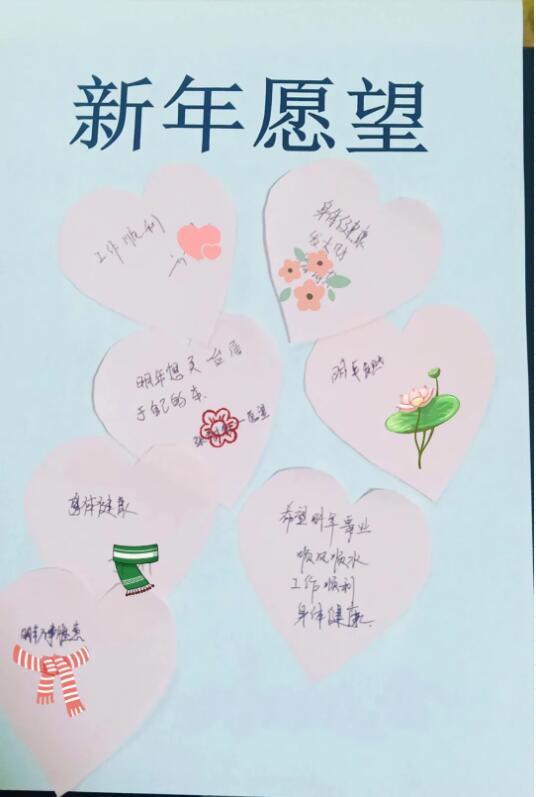 新年愿望
工作顺利
身体健康
发大财
明年想买一台属
于自己的车.
愿望
明年
身体健康
希望明年事业
顺风顺水
工作顺利
身体健康.